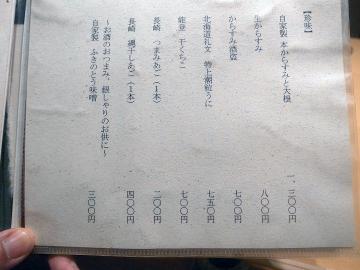 【珍味】
自家製 本からすみと大根 一、三〇〇円
生からすみ 八〇〇円
からすみ酒盗 七〇〇円
北海道礼文 特上潮粒うに 七五〇円
能登 干くちこ 七〇〇円
長崎 つまみあご(1本) 二〇〇円
長崎 縄干しあご(1本) 四〇〇円
~お酒のおつまみ、銀しゃりのお供に~
自家製 ふきのとう味噌 三〇〇円